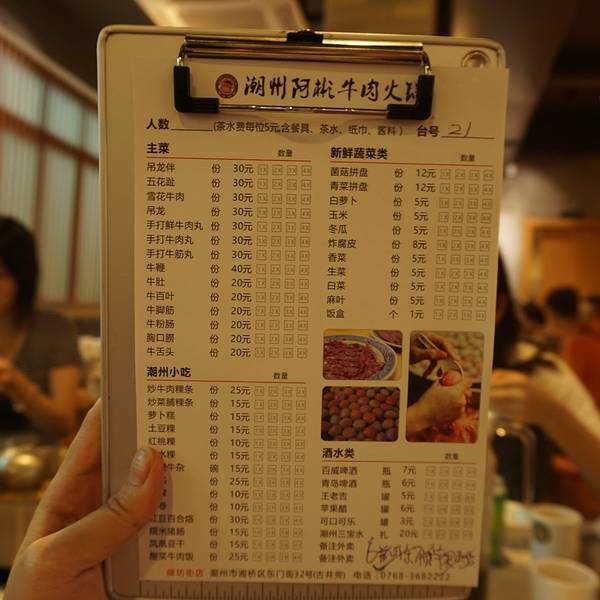 潮州阿彬牛肉火
人数 (茶水费每位5元,含餐具、茶水、纸巾、酱料) 台号 21
主菜 数量
吊龙伴 份 30元
五花趾 份 30元
雪花牛肉 份 30元
吊龙 份 30元
手打鲜牛肉丸 份 30元
手打牛肉丸 份 30元
手打牛筋丸 份 30元
牛鞭 份 40元
牛肚 份 20元
牛百叶 份 20元
牛脚筋 份 20元
牛粉肠 份 20元
胸口捞 份 20元
牛舌头 份 20元
潮州小吃 数量
炒牛肉粿条 份 25元
炒菜脯粿条 份 15元
萝卜糕 份 15元
土豆粿 份 15元
红桃粿 份 10元
水粿 份 15元
牛杂 碗 15元
份 25元
份 10元
卷 份 30元
豆百合烙 份 30元
糯米猪肠 份 15元
凤凰豆干 份 15元
酸菜牛肉饭 份 25元
新鲜蔬菜类 数量
菌菇拼盘 份 12元
青菜拼盘 份 12元
白萝卜 份 5元
玉米 份 5元
冬瓜 份 5元
炸腐皮 份 8元
香菜 份 5元
生菜 份 5元
白菜 份 5元
麻叶 份 5元
饭盒 个 1元
酒水类 数量
百威啤酒 瓶 7元
青岛啤酒 瓶 6元
王老吉 罐 5元
苹果醋 罐 6元
可口可乐 罐 3元
潮州三宝水 扎 20元
备注外卖
备注外卖
牌坊街店 潮州市湘桥区东门街32号(古井旁) 电话:0768-3682222